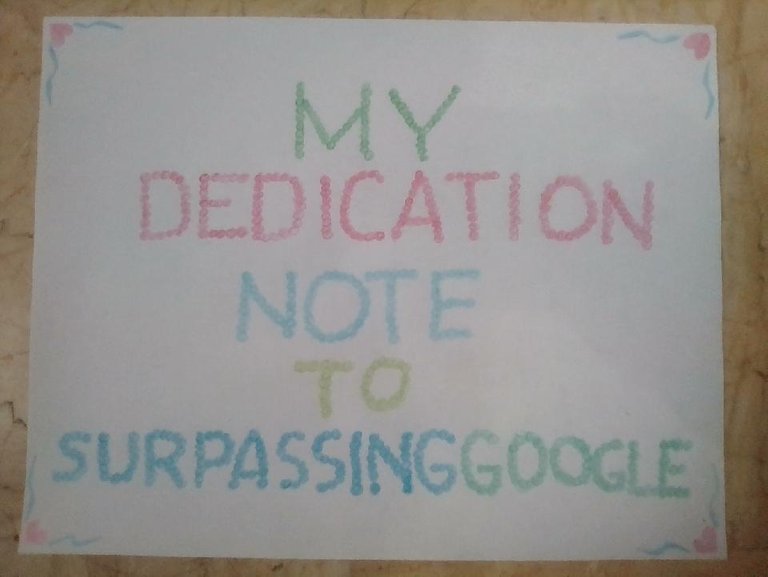 MY
DEDICATION
NOTE
TO
SURPASSINGGOOGLE